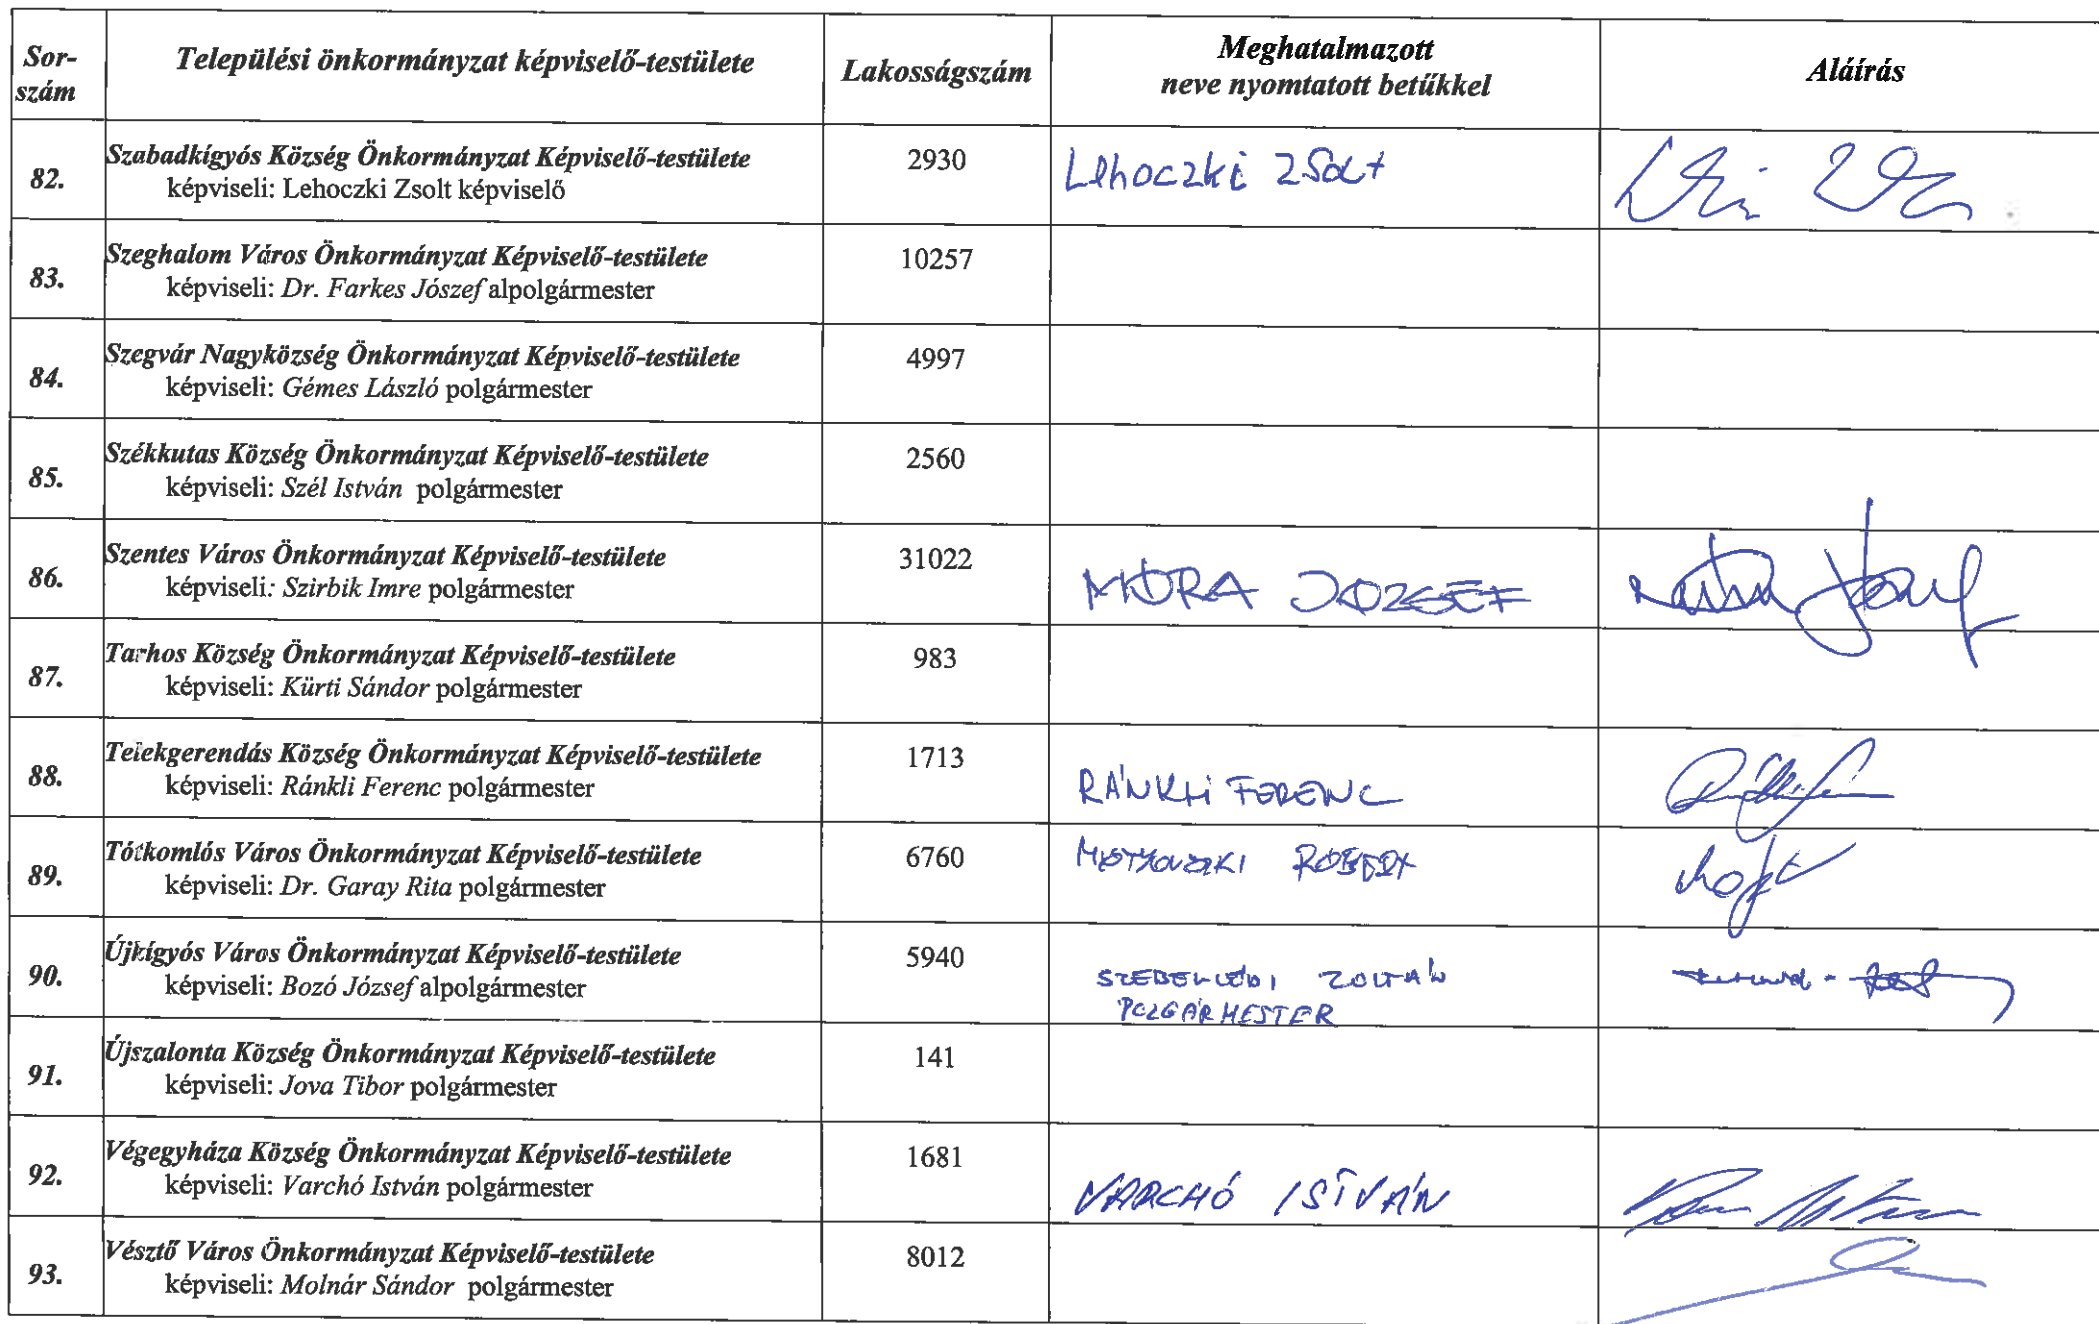 Sor-szám Települési önkormányzat képviselő-testülete Lakosságszám Meghatalmazott neve nyomtatott betűkkel Aláírás
82. Szabadkígyós Község Önkormányzat Képviselő-testülete 2930 Lehoczki Zsolt
képviseli: Lehoczki Zsolt képviselő
83. Szeghalom Város Önkormányzat Képviselő-testülete 10257
képviseli: Dr. Farkes Jószef alpolgármester
84. Szegvár Nagyközség Önkormányzat Képviselő-testülete 4997
képviseli: Gémes László polgármester
85. Székkutas Község Önkormányzat Képviselő-testülete 2560
képviseli: Szél István polgármester
86. Szentes Város Önkormányzat Képviselő-testülete 31022 MÓRA JÓZSEF
képviseli: Szirbik Imre polgármester
87. Tarhos Község Önkormányzat Képviselő-testülete 983
képviseli: Kürti Sándor polgármester
88. Telekgerendás Község Önkormányzat Képviselő-testülete 1713 RÁNKLI FERENC
képviseli: Ránkli Ferenc polgármester
89. Tótkomlós Város Önkormányzat Képviselő-testülete 6760 RÓBERT
képviseli: Dr. Garay Rita polgármester
90. Újkígyós Város Önkormányzat Képviselő-testülete 5940 SZEBELLÉDI ZOLTÁN
képviseli: Bozó József alpolgármester POLGÁRMESTER
91. Újszalonta Község Önkormányzat Képviselő-testülete 141
képviseli: Jova Tibor polgármester
92. Végegyháza Község Önkormányzat Képviselő-testülete 1681 VARCHÓ ISTVÁN
képviseli: Varchó István polgármester
93. Vésztő Város Önkormányzat Képviselő-testülete 8012
képviseli: Molnár Sándor polgármester